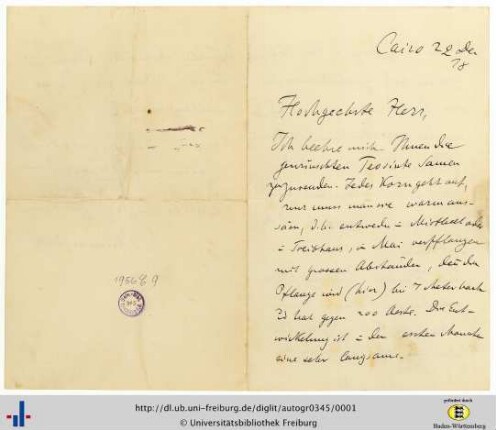 Cairo 22 Dec
78
Hochgeehrter Herr,
Ich beehre mich Ihnen die
gewünschten Teosinte Samen
zuzusenden. Jedes Korn geht auf,
nur muss man sie warm aus-
säen, d.h. entweder in Mistbeet oder
in Treibhaus, in Mai verpflanzen
mit grossen Abständen, denn die
Pflanze wird (hier) bis 7 Meter hoch
u hat gegen 200 Aeste. Die Ent-
wickelung ist in den ersten Monaten
eine sehr langsame.
1956/8 9
http://dl.ub.uni-freiburg.de/diglit/autogr0345/0001
© Universitätsbibliothek Freiburg
gefördert durch
Baden-Württemberg